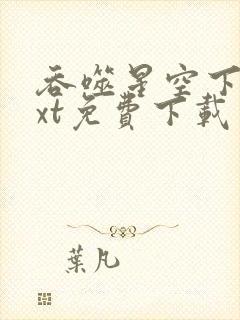 吞噬星空下
xt免費下載
葉凡